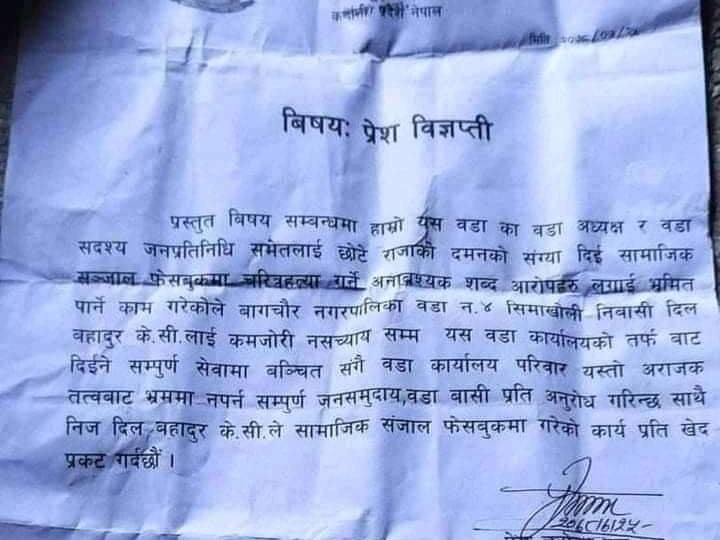 कर्णाली प्रदेश नेपाल
मिति
बिषयः प्रेश विज्ञप्ती
प्रस्तुत बिषय सम्बन्धमा हाम्रो यस वडा का वडा अध्यक्ष र वडा
सदश्य जनप्रतिनिधि समेतलाई छोटे राजाको दमनको संग्या दिई सामाजिक
सञ्जाल फेसबुकमा चरित्रहत्या गर्ने अनावश्यक शब्द आरोपहरु लगाई भ्रमित
पार्ने काम गरेकोले बागचौर नगरपालिका वडा न.४ सिमाखोली निवासी दिल
वहादुर के.सी.लाई कमजोरी नसच्याय सम्म यस वडा कार्यालयको तर्फ बाट
दिईने सम्पुर्ण सेवामा बञ्चित संगै वडा कार्यालय परिवार यस्तो अराजक
तत्वबाट भ्रममा नपर्न सम्पुर्ण जनसमुदाय,वडा बासी प्रति अनुरोध गरिन्छ साथै
निज दिल वहादुर के.सी.ले सामाजिक संजाल फेसबुकमा गरेको कार्य प्रति खेद
प्रकट गर्दछौं ।